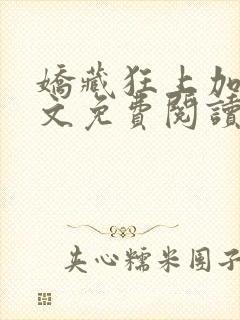 嬌藏狂上加
文免費閱讀
夹心糯米团子